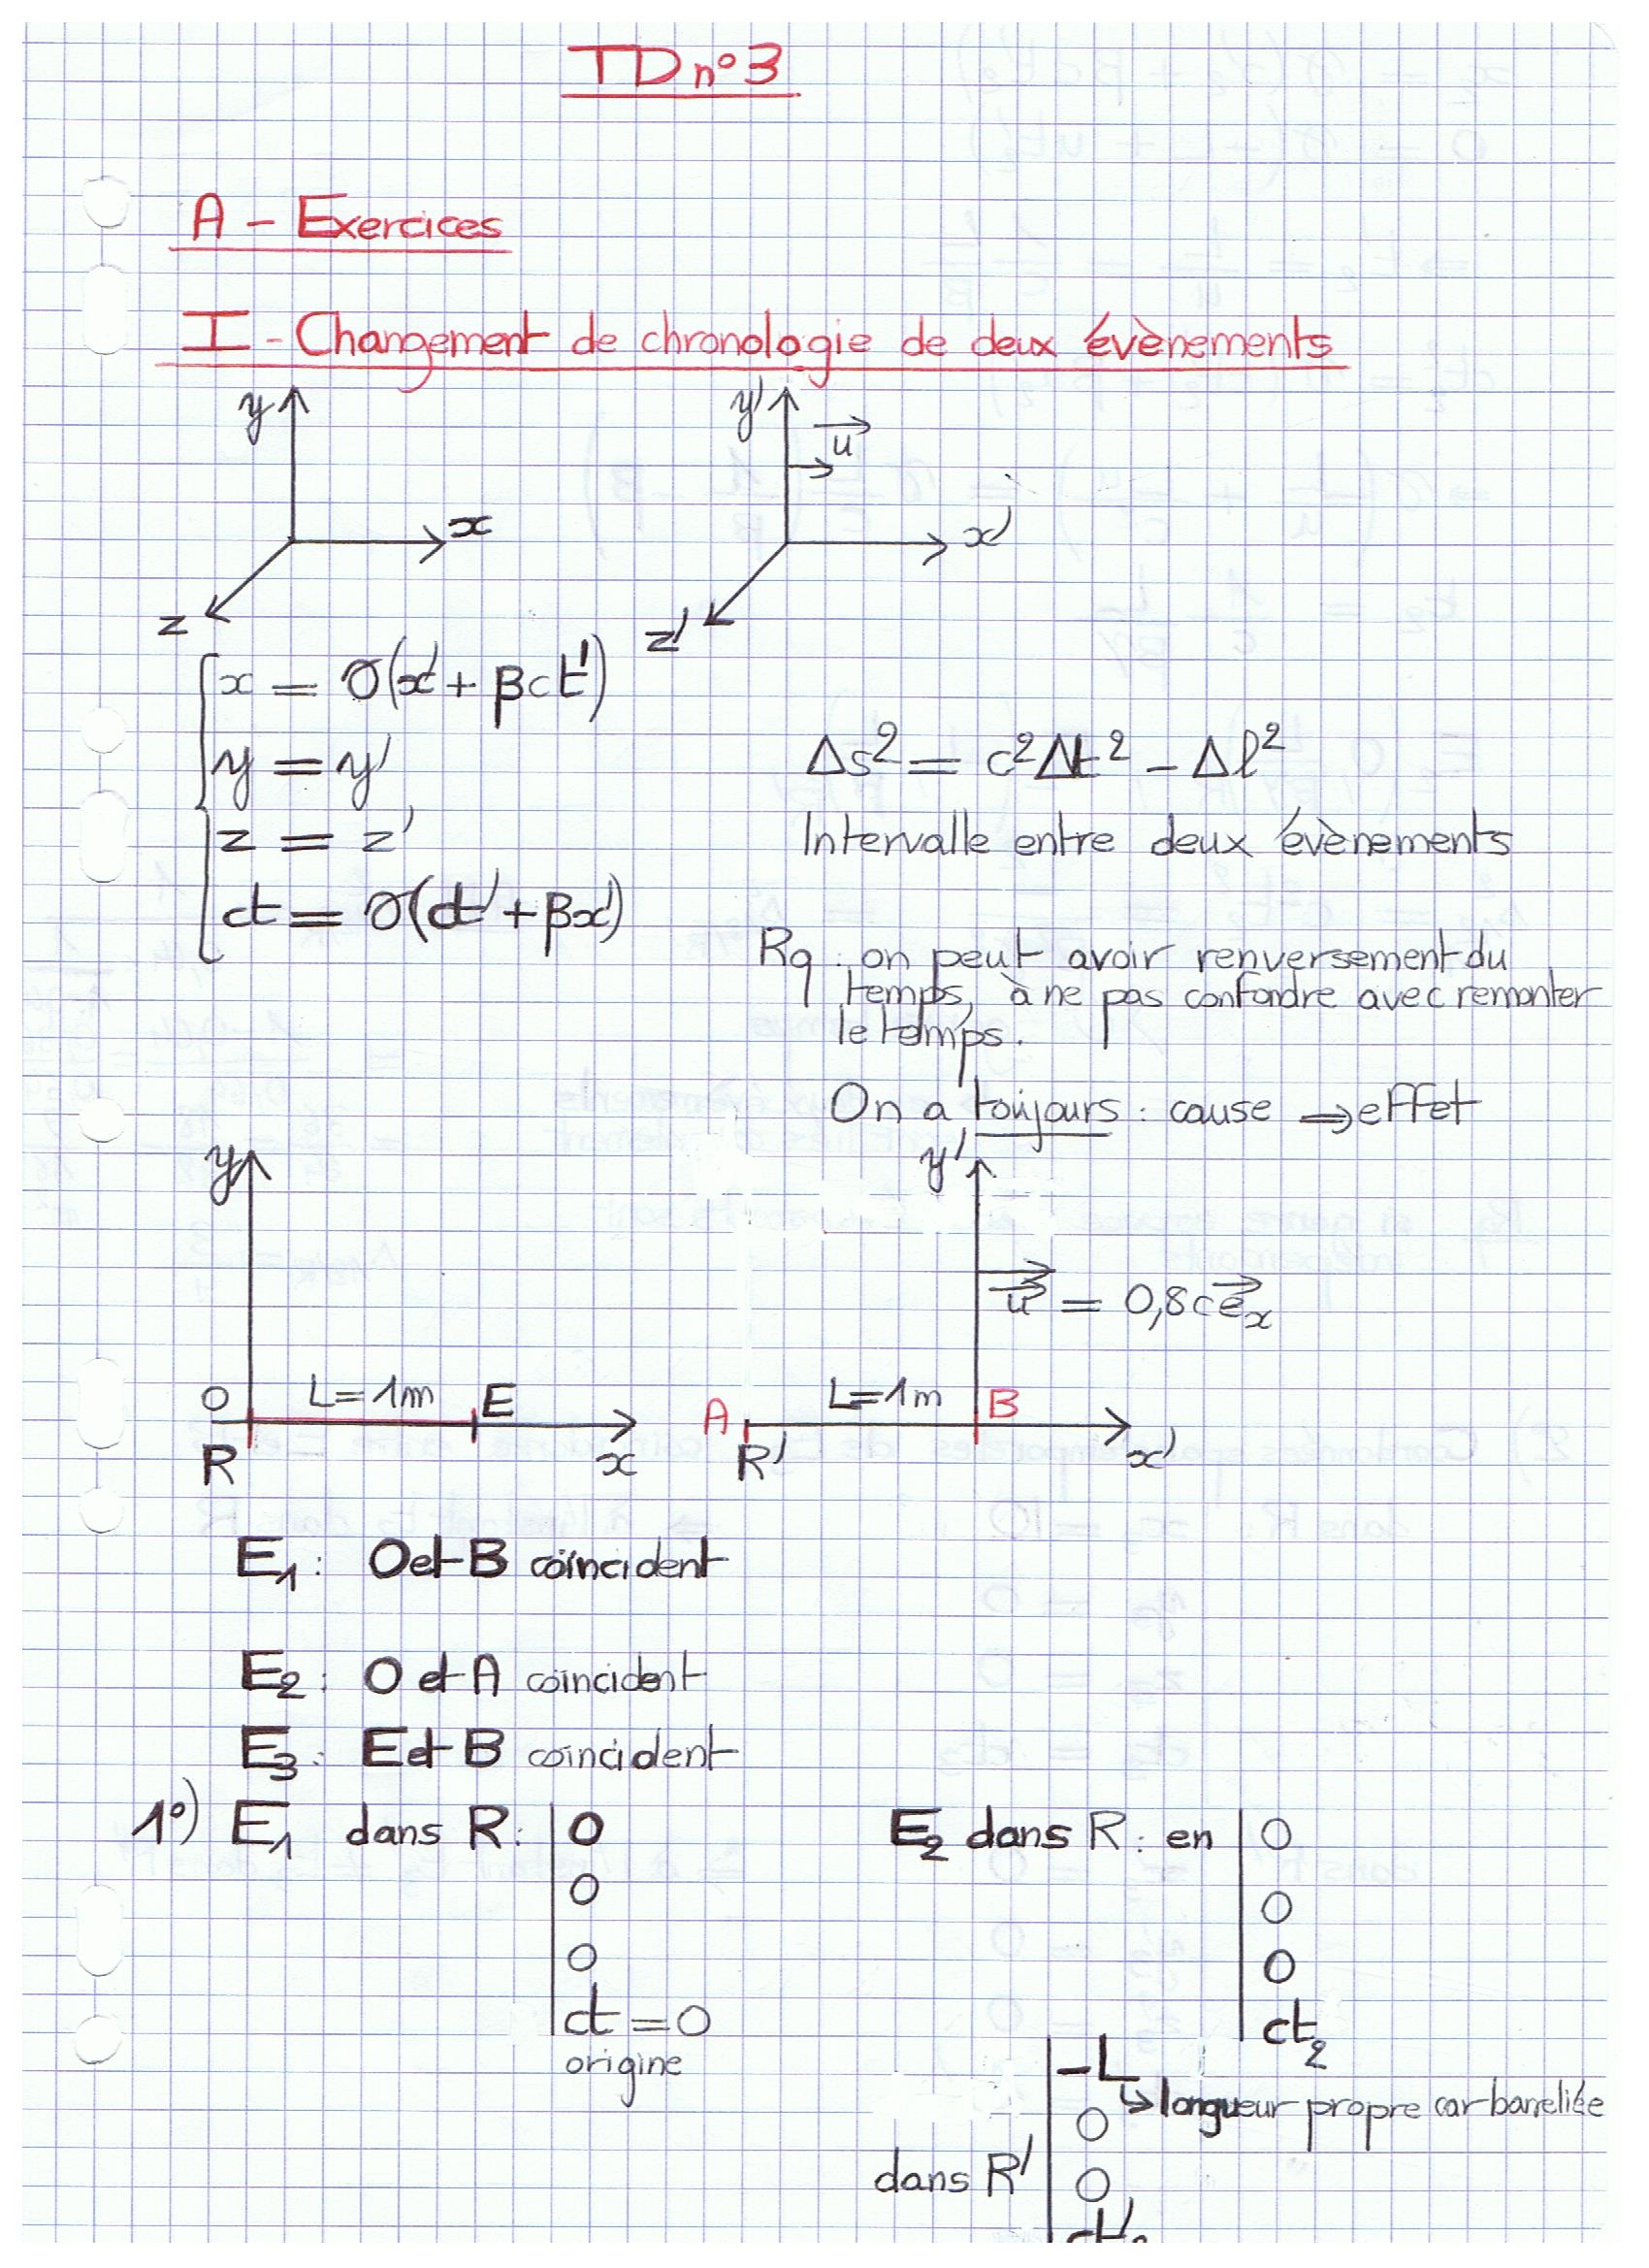 TD n°3
A - Exercices
I - Changement de chronologie de deux évènements
y
y'
u
x
x'
z
z'
x = γ(x' + βct')
y = y'
z = z'
ct = γ(ct' + βx')
Δs² = c²Δt² - Δl²
Intervalle entre deux évènements
Rq : on peut avoir renversement du
temps, à ne pas confondre avec remonter
le temps.
On a toujours : cause ⇒ effet
y
y'
u = 0,8c e_x
O
L = 1m
E
A
L = 1m
B
R
x
R'
x'
E₁ : O et B coïncident
E₂ : O et A coïncident
E₃ : E et B coïncident
1°) E₁ dans R : 0
0
0
ct = 0
origine
E₂ dans R : en 0
0
0
ct₂
-L
↳ longueur propre car barre liée
0
dans R' 0
ct'₂